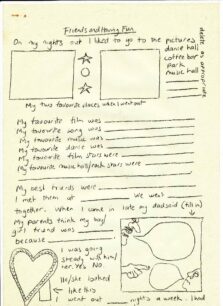 Friends and Having Fun
On my nights out I liked to go to the pictures
dance hall
coffee bar
park
music hall
delete as appropriate
My two favourite places when I went out
My favourite film was
My favourite song was
My favourite music was
My favourite dance was
My favourite film stars were
My favourite music hall/rock stars were
My best friends were
I met them at we went
together. When I come in late my dad said (fill in)
My parents think my boy/
girl friend was
because
I was going
steady with him/
her. Yes No
He/she looked
like this
I went out nights a week. I had